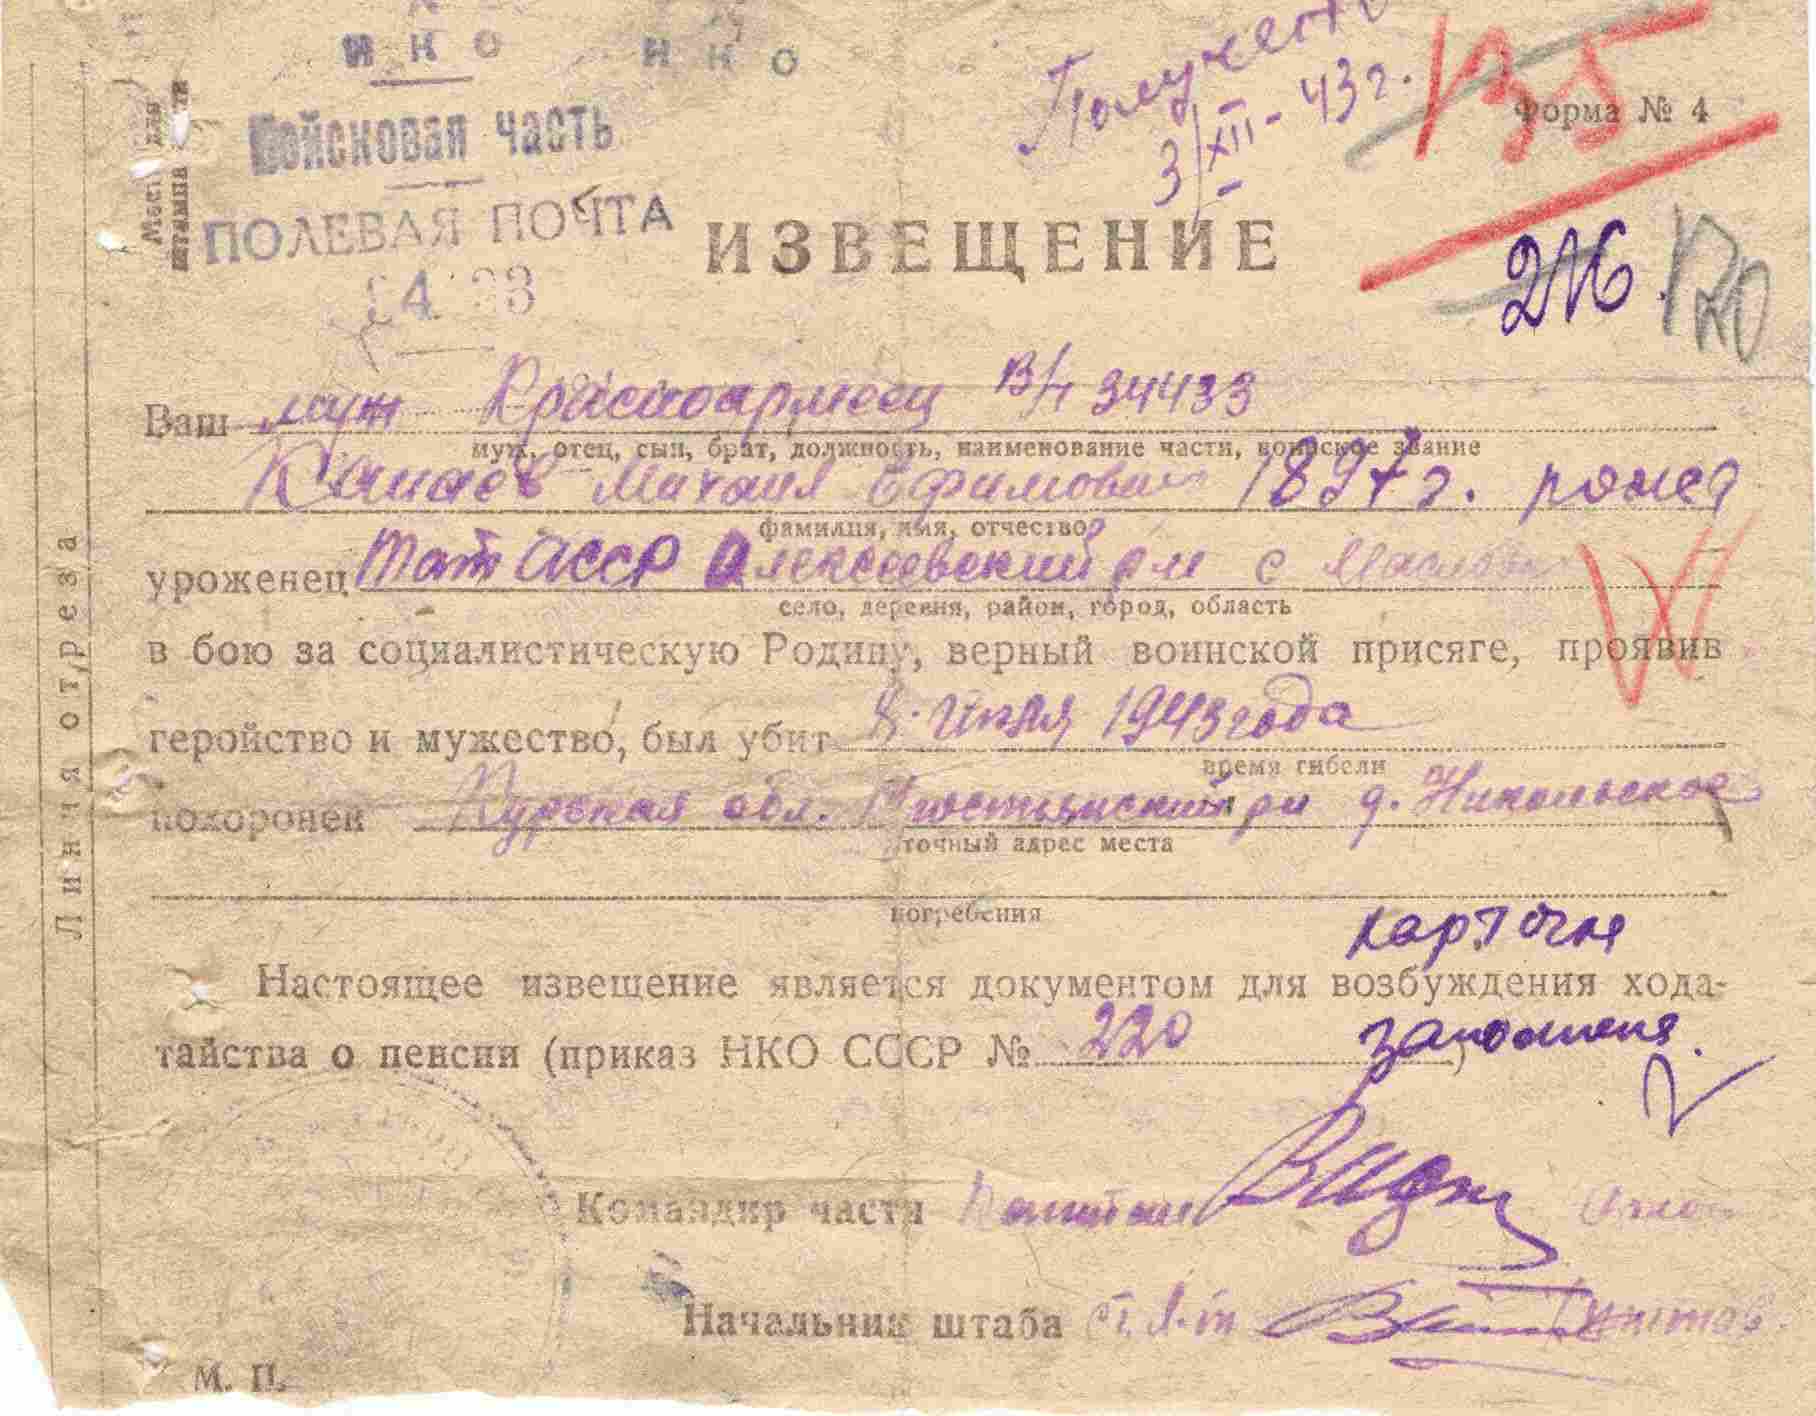 НКО НКО
Войсковая часть
ПОЛЕВАЯ ПОЧТА
Место для
штампа части
Получено
3/XII-43г.
135
Форма № 4
ИЗВЕЩЕНИЕ
216. 120
Линия отреза
Ваш муж Красноармеец в/ч 34433
муж, отец, сын, брат, должность, наименование части, воинское звание
Михаил Ефимович 1897 г. рожд
фамилия, имя, отчество
уроженец Тат АССР Алексеевский р-н с
село, деревня, район, город, область
в бою за социалистическую Родину, верный воинской присяге, проявив
геройство и мужество, был убит 8. июля 1943 года
время гибели
похоронен Курская обл. р-н д. Никольское
точный адрес места
погребения
карточка
Настоящее извещение является документом для возбуждения хода-
тайства о пенсии (приказ НКО СССР № 220 )
заполнена.
Командир части Капитан
Начальник штаба ст. л-т
М. П.